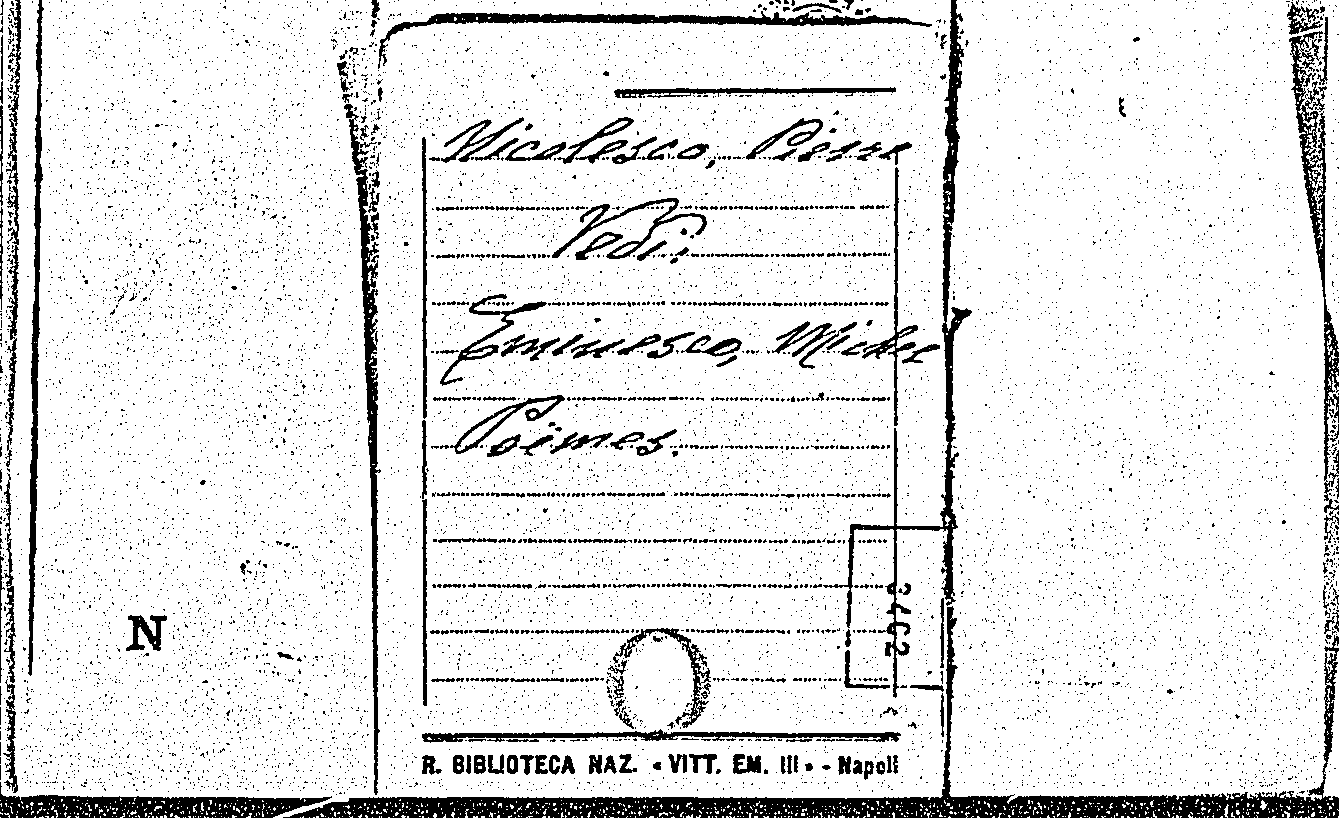 Nicolesco, Pierre
Vedi:
Eminesco, Michel
Poëmes.
3462
N
R. BIBLIOTECA NAZ. «VITT. EM. III» - Napoli